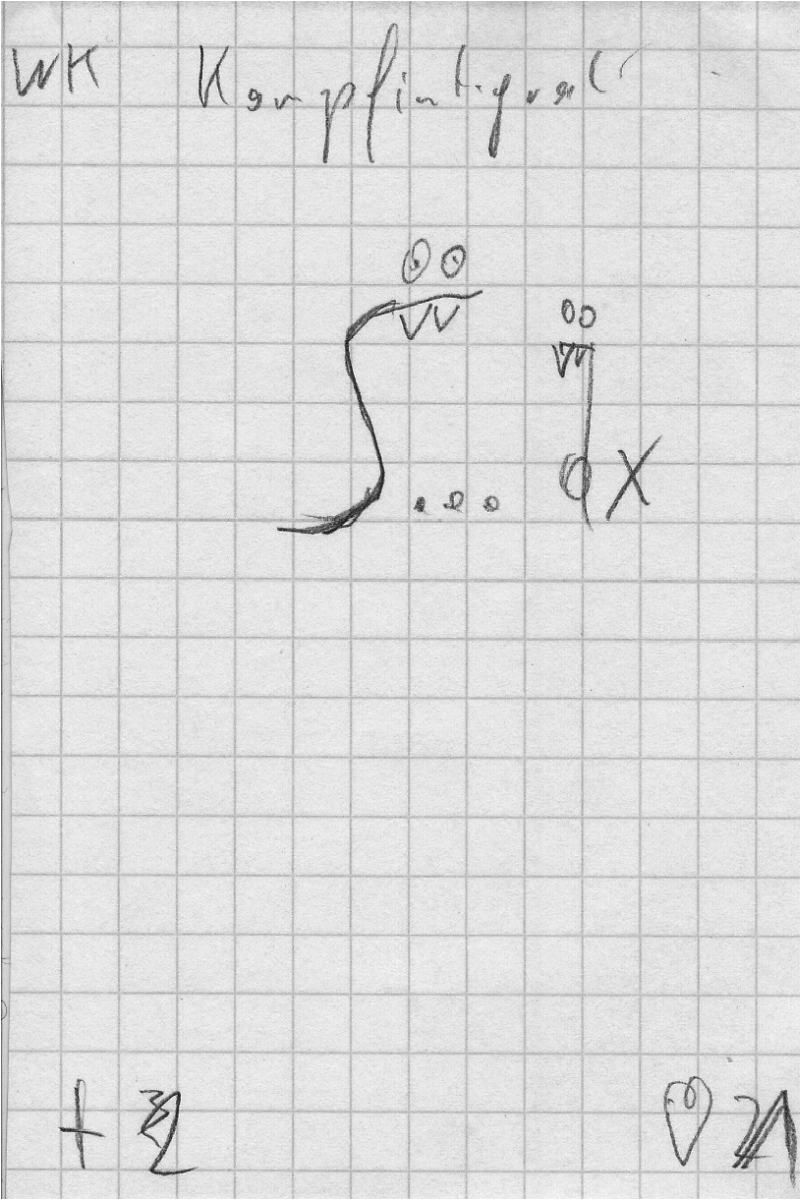 WK Kampfintegral
... d x
+ 2